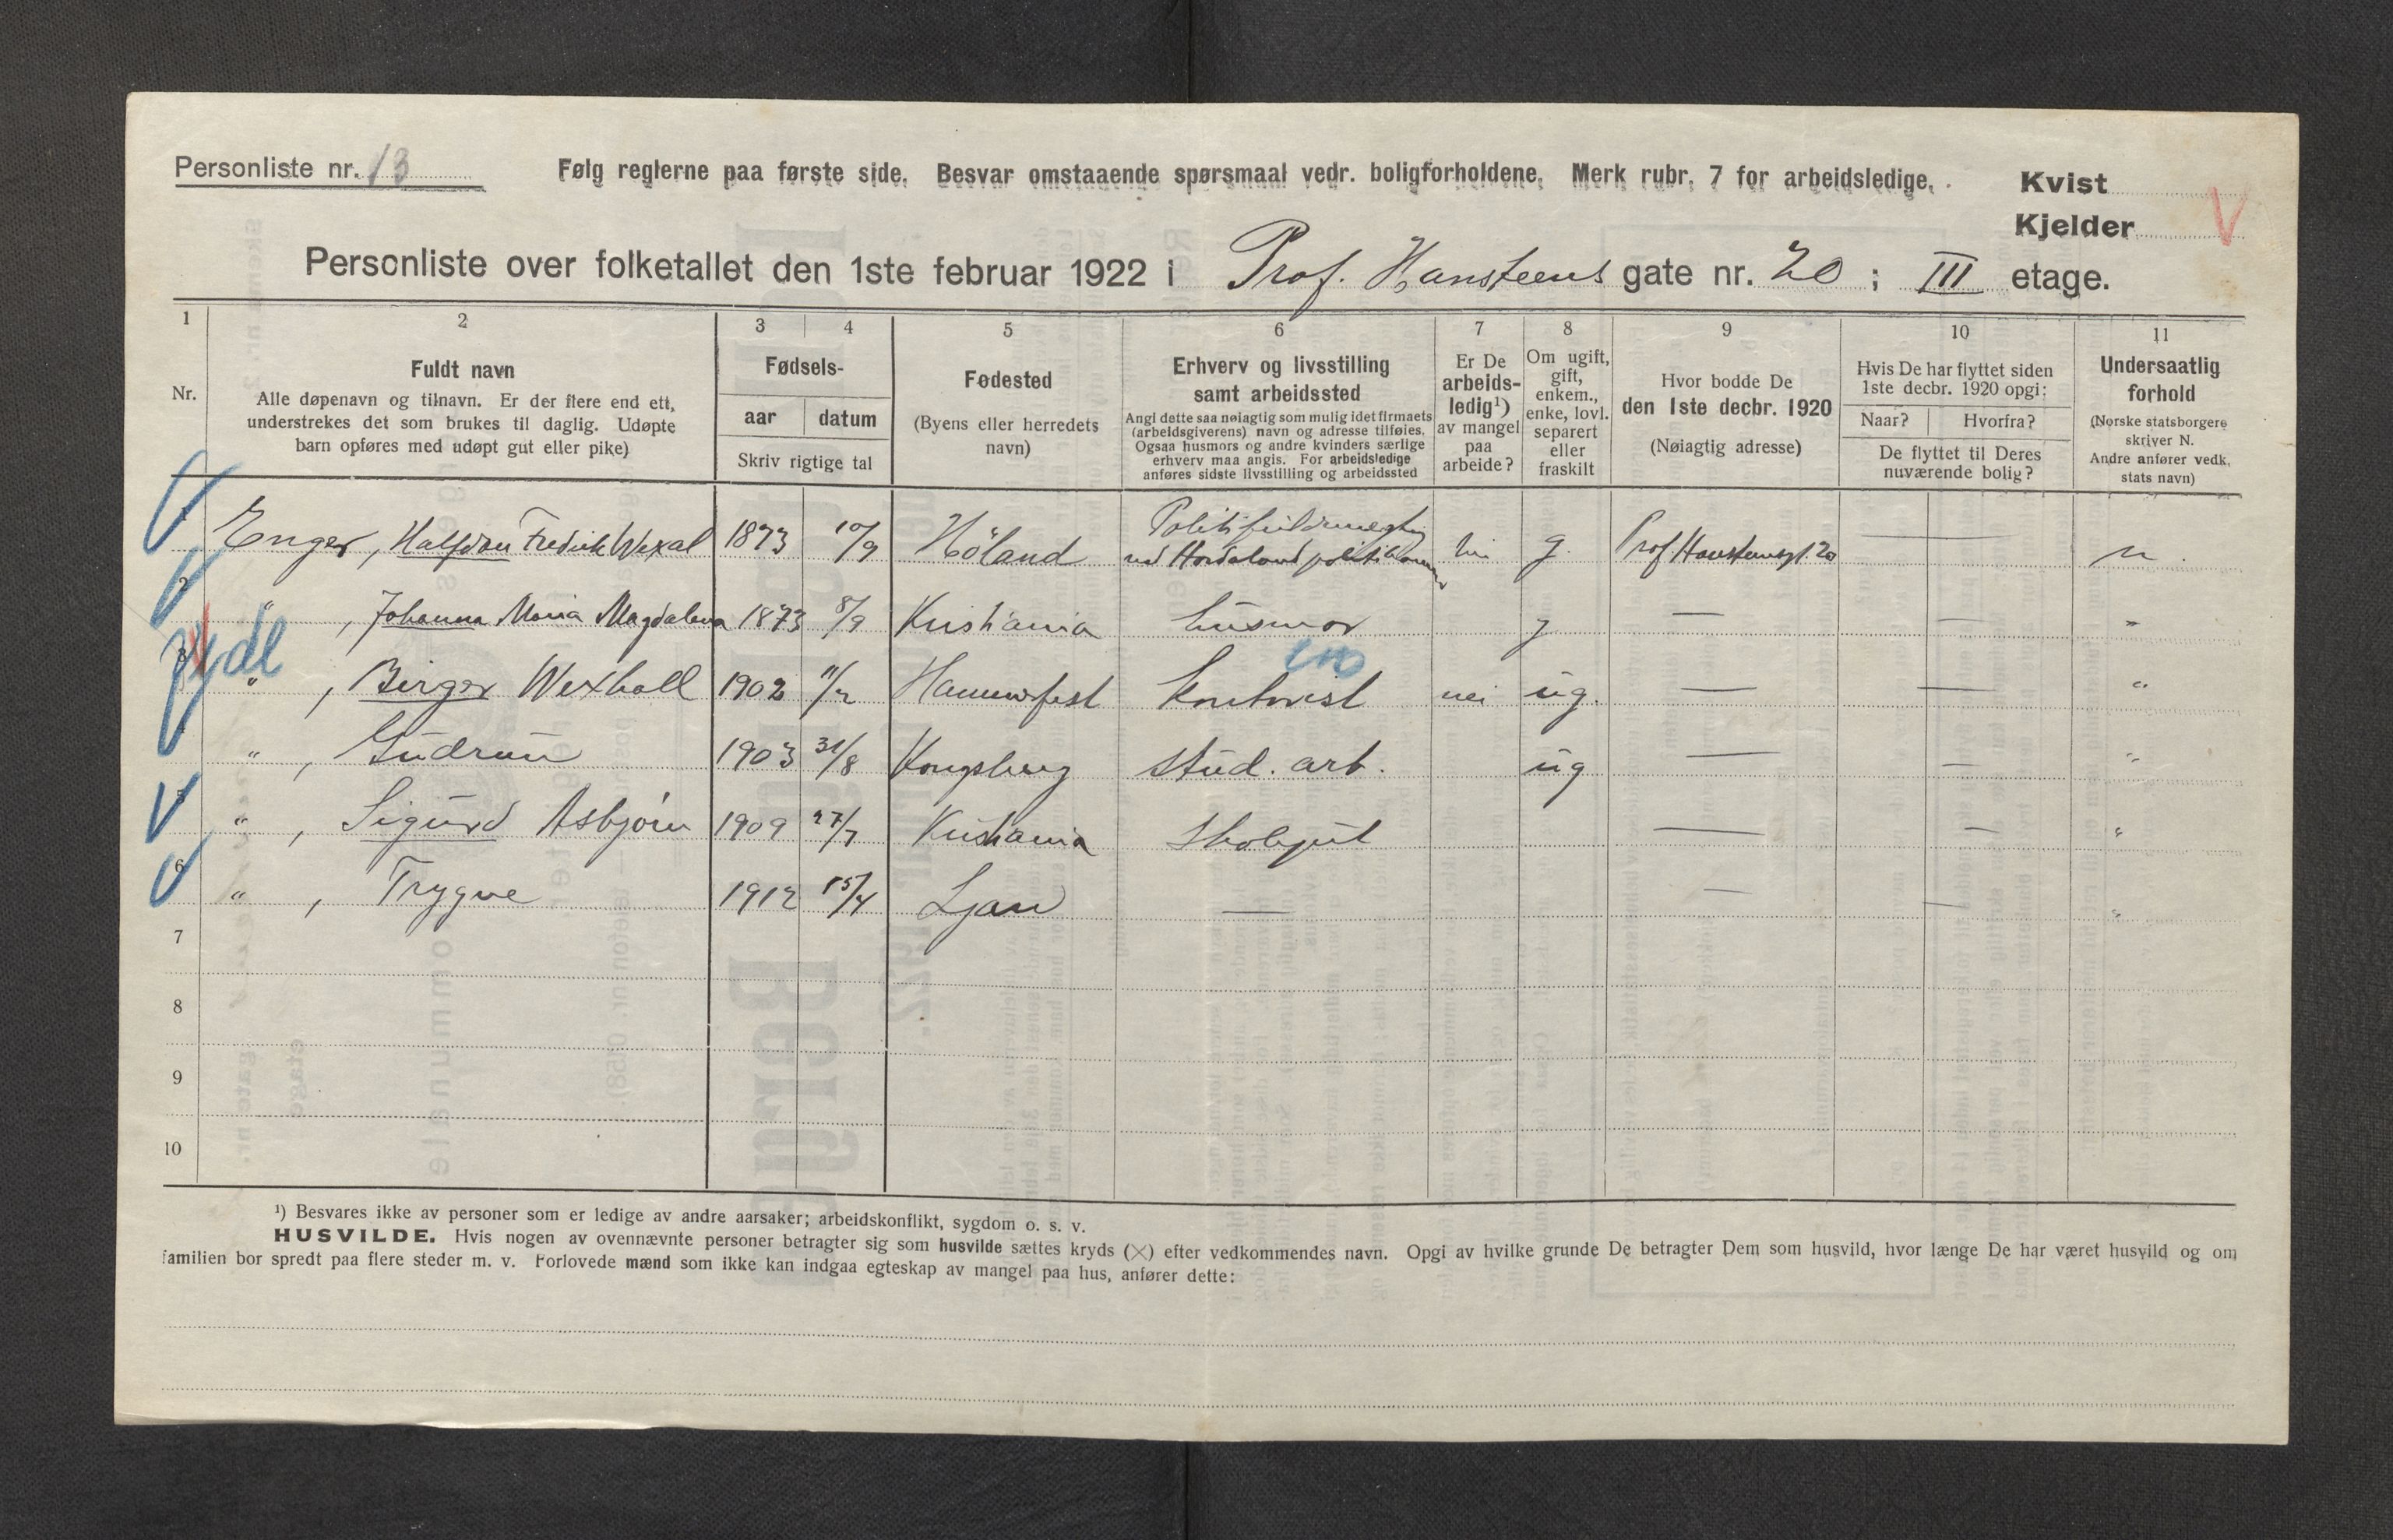 Personliste nr. 13
Følg reglerne paa første side. Besvar omstaaende spørsmaal vedr. boligforholdene. Merk rubr. 7 for arbeidsledige.
Kvist
Kjelder
V
Personliste over folketallet den 1ste februar 1922 i Prof. Hansteens gate nr. 20 ; III etage.
1 2 3 4 5 6 7 8 9 10 11
Nr.
Fuldt navn
Alle døpenavn og tilnavn. Er der flere end ett,
understrekes det som brukes til daglig. Udøpte
barn opføres med udøpt gut eller pike)
Fødsels-
aar datum
Skriv rigtige tal
Fødested
(Byens eller herredets
navn)
Erhverv og livsstilling
samt arbeidssted
Angi dette saa nøiagtig som mulig idet firmaets
(arbeidsgiverens) navn og adresse tilføies.
Ogsaa husmors og andre kvinders særlige
erhverv maa angis. For arbeidsledige
anføres sidste livsstilling og arbeidssted
Er De
arbeids-
ledig¹)
av mangel
paa
arbeide?
Om ugift,
gift,
enkem.,
enke, lovl.
separert
eller
fraskilt
Hvor bodde De
den 1ste decbr. 1920
(Nøiagtig adresse)
Hvis De har flyttet siden
1ste decbr. 1920 opgi:
Naar? Hvorfra?
De flyttet til Deres
nuværende bolig?
Undersaatlig
forhold
(Norske statsborgere
skriver N.
Andre anfører vedk.
stats navn)
Enger, Halfdan Fredrik Wexal 1873 10/9 Høland Politifuldmegtig ved Hordaland politikammer g. Prof Hansteensgt. 20 — n.
2 " , Johanna Maria Magdalena 1873 8/9 Kristiania husmor g — — "
3 " , Birger Wexhall 1902 11/2 Hammerfest kontorist nei ug. — — "
" , Gudrun 1903 31/8 Kongsberg stud. art. ug — — "
5 " , Sigurd Asbjørn 1909 27/7 Kristiania Skolegut — — "
6 " , Trygve 1912 15/4 Ljan — — — "
7
8
9
10
¹) Besvares ikke av personer som er ledige av andre aarsaker; arbeidskonflikt, sygdom o. s. v.
HUSVILDE. Hvis nogen av ovennævnte personer betragter sig som husvilde sættes kryds (×) efter vedkommendes navn. Opgi av hvilke grunde De betragter Dem som husvild, hvor længe De har været husvild og om
familien bor spredt paa flere steder m. v. Forlovede mænd som ikke kan indgaa egteskap av mangel paa hus, anfører dette: